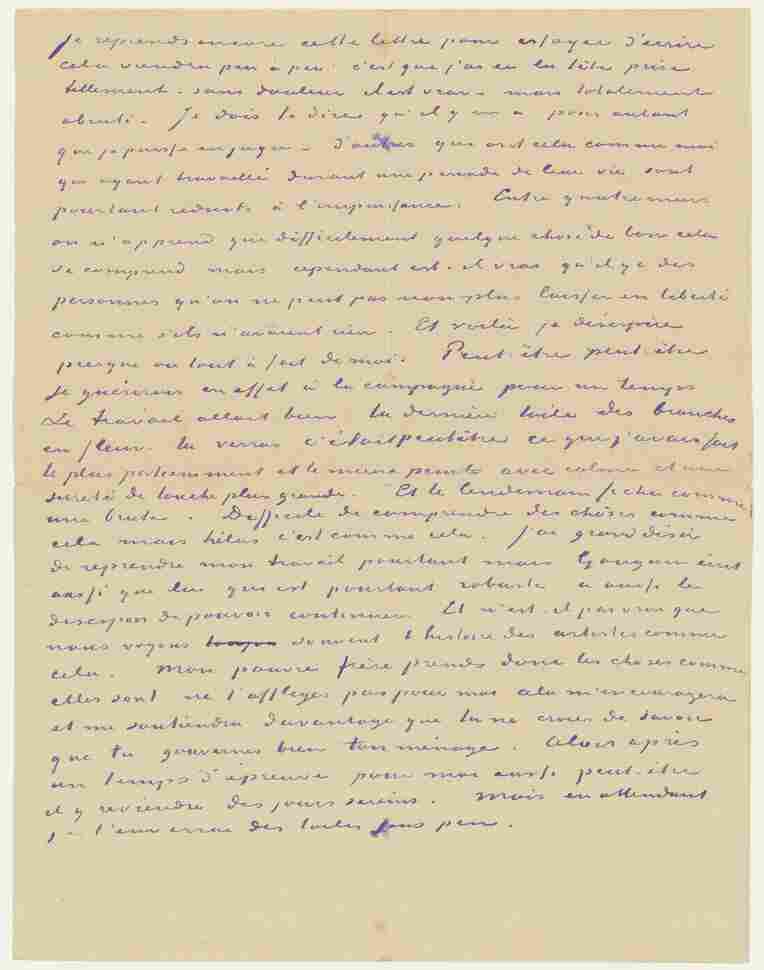 Je reprends encore cette lettre pour essayer d'ecrire
cela viendra peu à peu. c'est que j'ai eu la tête prise
tellement. sans douleur il est vrai – mais totalement
abruti. Je dois te dire qu'il y en a pour autant
que je puisse en juger – d'autres qui ont cela comme moi
qui ayant travaillé durant une periode de leur vie sont
pourtant reduits à l'impuissance. Entre quatre murs
on n'apprend que difficilement quelque chose de bon cela
se comprend mais cependant est-il vrai qu'il y a des
personnes qu'on ne peut pas non plus laisser en liberté
comme s'ils n'avaient rien. Et voilà je désespère
presque ou tout à fait de moi. Peut-être peut-être
je guérirais en effet à la campagne pour un temps
Le travail allait bien la dernière toile des branches
en fleur. tu verras c'était peutêtre ce que j'avais fait
le plus patiemment et le mieux peint avec calme et une
sureté de touche plus grande. Et le lendemain fichu comme
une brute. Difficile de comprendre des choses comme
cela mais hélas c'est comme cela. J'ai grand désir
de reprendre mon travail pourtant mais Gauguin écrit
aussi que lui qui est pourtant robuste a aussi le
desespoir de pouvoir continuer. Et n'est-il pas vrai que
nous voyons souvent l'histoire des artistes comme
cela. Mon pauvre frère prends donc les choses comme
elles sont ne t'affliges pas pour moi cela m'encouragera
et me soutiendra davantage que tu ne crois de savoir
que tu gouvernes bien ton ménage. Alors après
un temps d'épreuve pour moi aussi peut-être
il y reviendra des jours sereins. Mais en attendant
j t'enverrai des toiles sous peu.